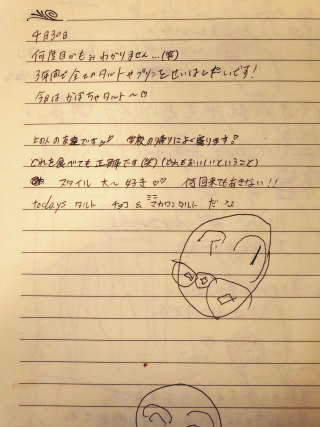 4月30日
何度目かもぉわかりません…(笑)
3年間で全てのタルトやプリンをせいはしたいです!
今日はかぼちゃタルト〜♡
の友達です♡ 学校の帰りによく寄ります♡
どれを食べても正解です(笑)(どれもおいしいということ)
スタイル 大〜好き♡ 何回来てもあきない!!
todays タルト チョコ & ミニマカロンタルト だよ